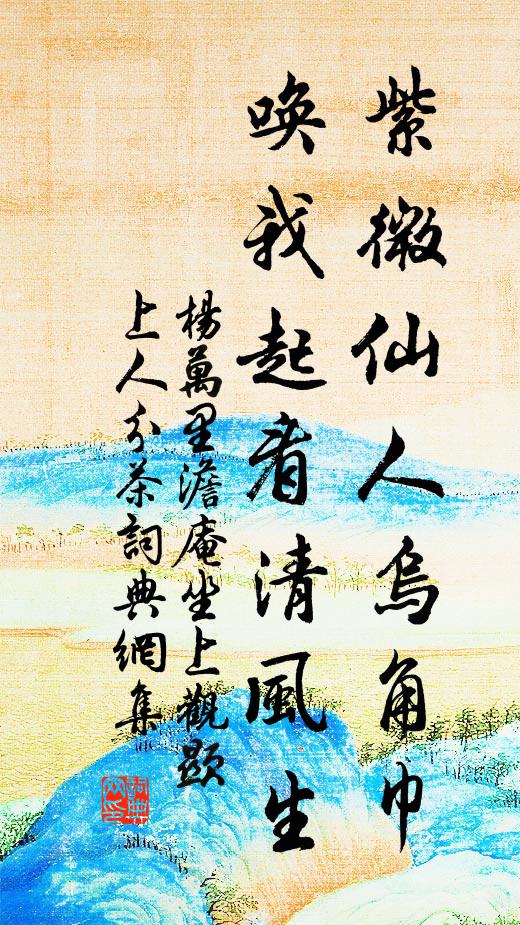 紫微仙人烏角巾
喚我起看清風生
楊萬里澹庵坐上觀顯
上人分茶詞典網集